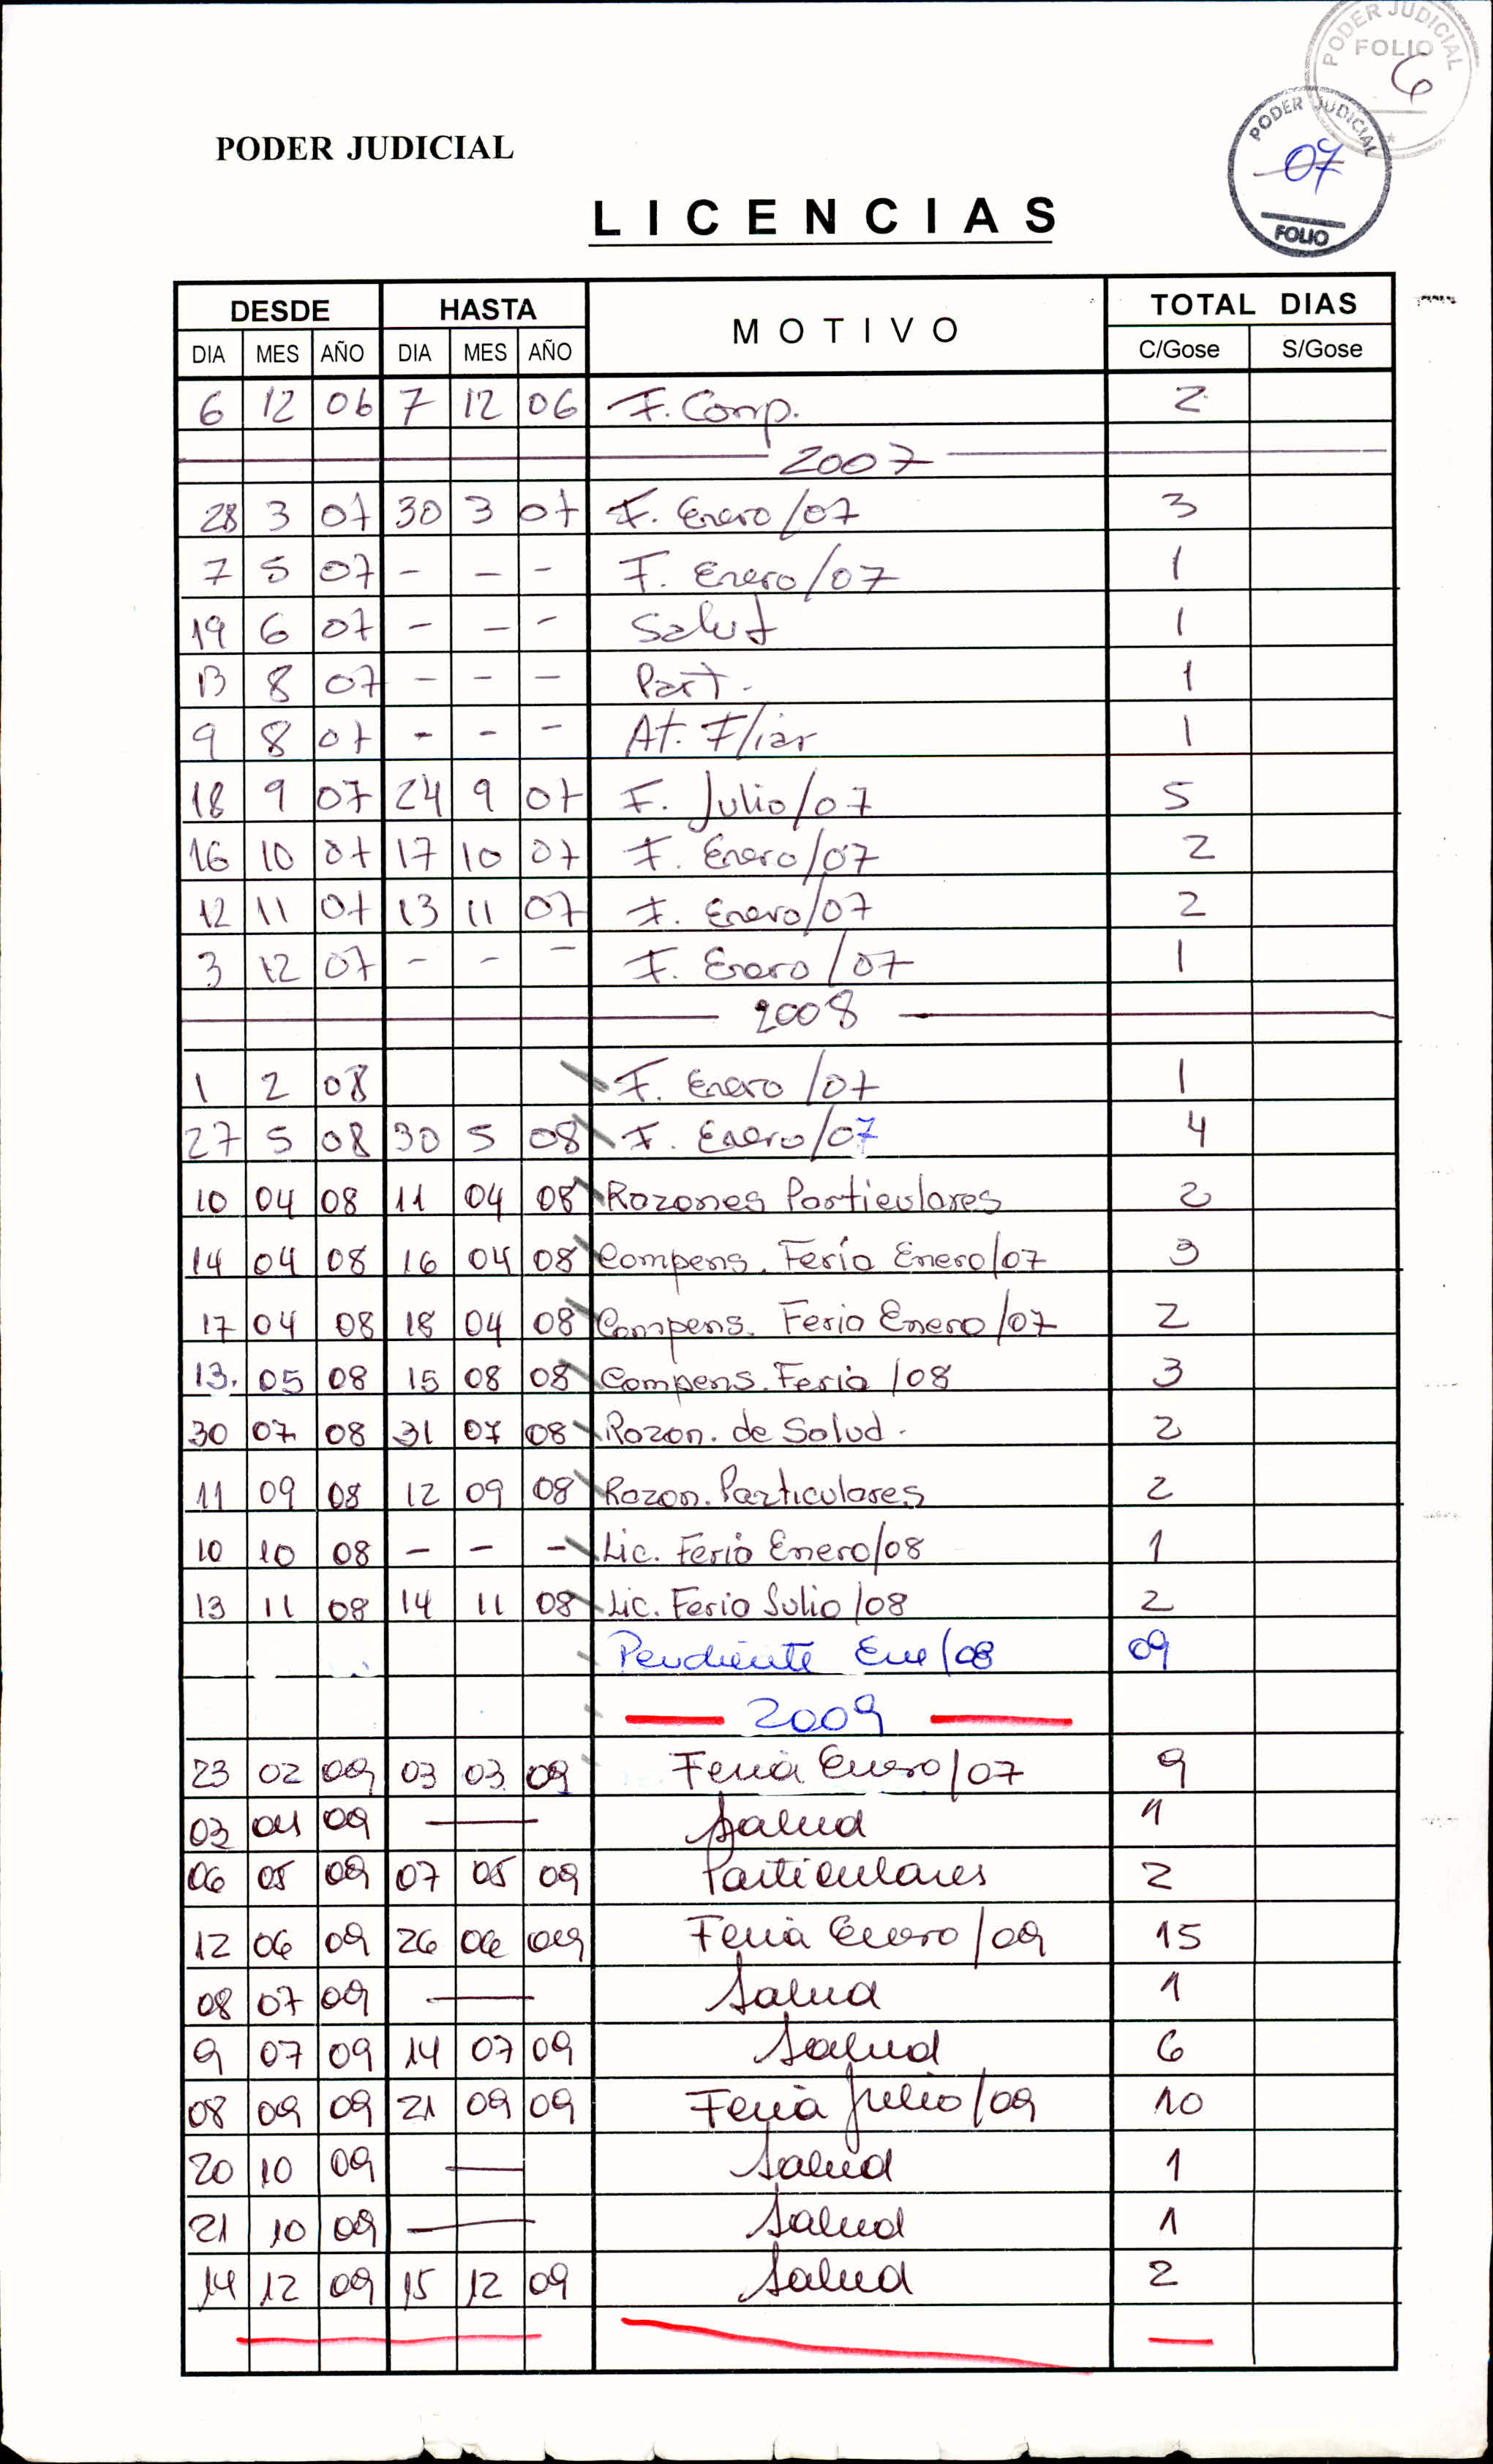 PODER JUDICIAL
FOLIO
6
PODER JUDICIAL
07
FOLIO
PODER JUDICIAL
LICENCIAS
DESDE HASTA MOTIVO TOTAL DIAS
DIA MES AÑO DIA MES AÑO C/Gose S/Gose
6 12 06 7 12 06 F. Comp. 2
2007
28 3 07 30 3 07 F. Enero/07 3
7 5 07 - - - F. Enero/07 1
19 6 07 - - - Salud 1
13 8 07 - - - Part. 1
9 8 07 - - - At. Fliar 1
18 9 07 24 9 07 F. Julio/07 5
16 10 07 17 10 07 F. Enero/07 2
12 11 07 13 11 07 F. Enero/07 2
3 12 07 - - - F. Enero/07 1
2008
1 2 08 F. Enero/07 1
27 5 08 30 5 08 F. Enero/07 4
10 04 08 11 04 08 Razones Particulares 2
14 04 08 16 04 08 Compens. Feria Enero/07 3
17 04 08 18 04 08 Compens. Feria Enero/07 2
13. 05 08 15 08 08 Compens. Feria /08 3
30 07 08 31 07 08 Razon. de Salud. 2
11 09 08 12 09 08 Razon. Particulares 2
10 10 08 - - - Lic. Feria Enero/08 1
13 11 08 14 11 08 Lic. Feria Julio/08 2
Pendiente Ene/08 09
2009
23 02 09 03 03 09 Feria Enero/07 9
03 04 09 — Salud 1
06 05 09 07 05 09 Particulares 2
12 06 09 26 06 09 Feria Enero/09 15
08 07 09 — Salud 1
9 07 09 14 07 09 Salud 6
08 09 09 21 09 09 Feria Julio/09 10
20 10 09 — Salud 1
21 10 09 — Salud 1
14 12 09 15 12 09 Salud 2